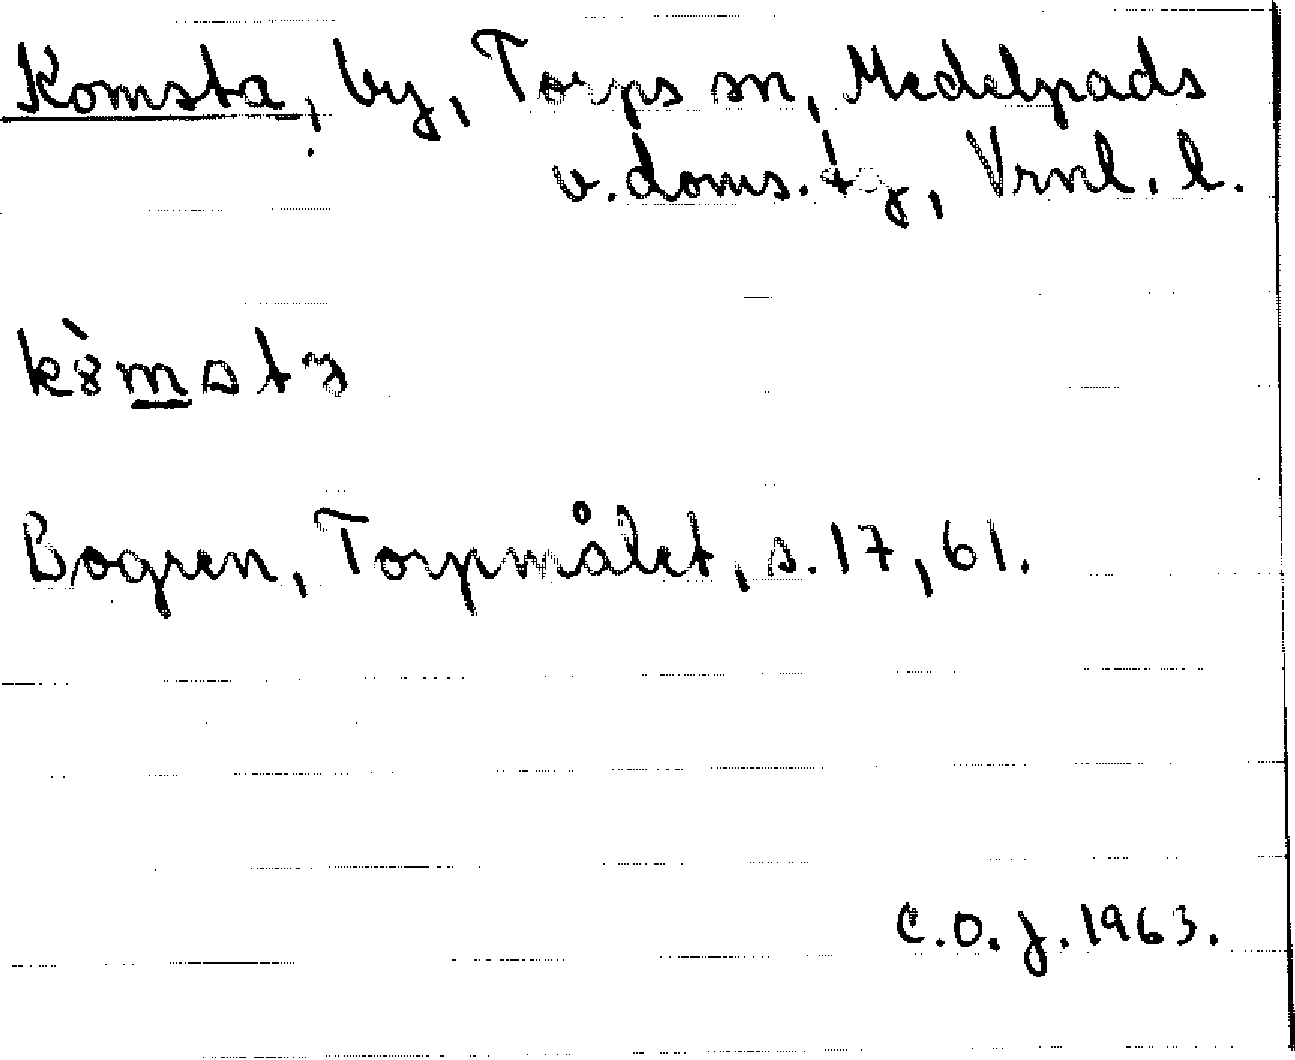 Komsta, by, Torps sn, Medelpads
v. doms. tg, Vrnl. l.
Bogren, Torpmålet, s. 17, 61.
C.O.J. 1963.